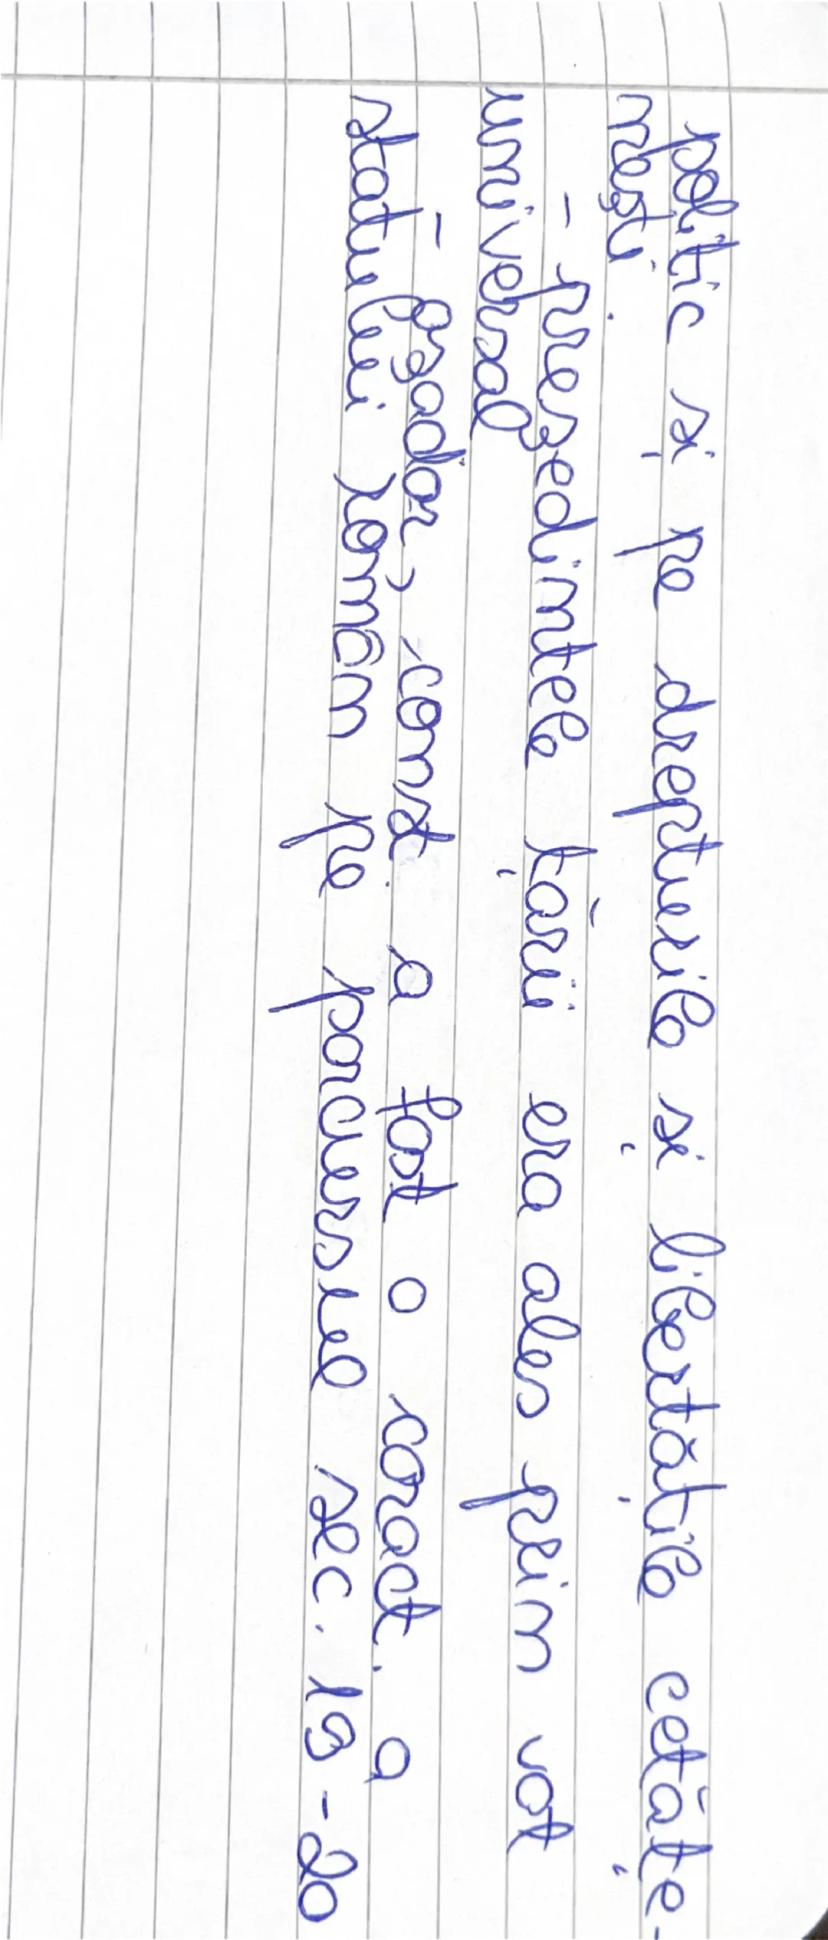 politic și pe drepturile și libertățile cetățe-
nești
- președintele țării era ales prin vot
universal
- așadar, const. a fost o caract. a
statului român pe parcursul sec. 19-20